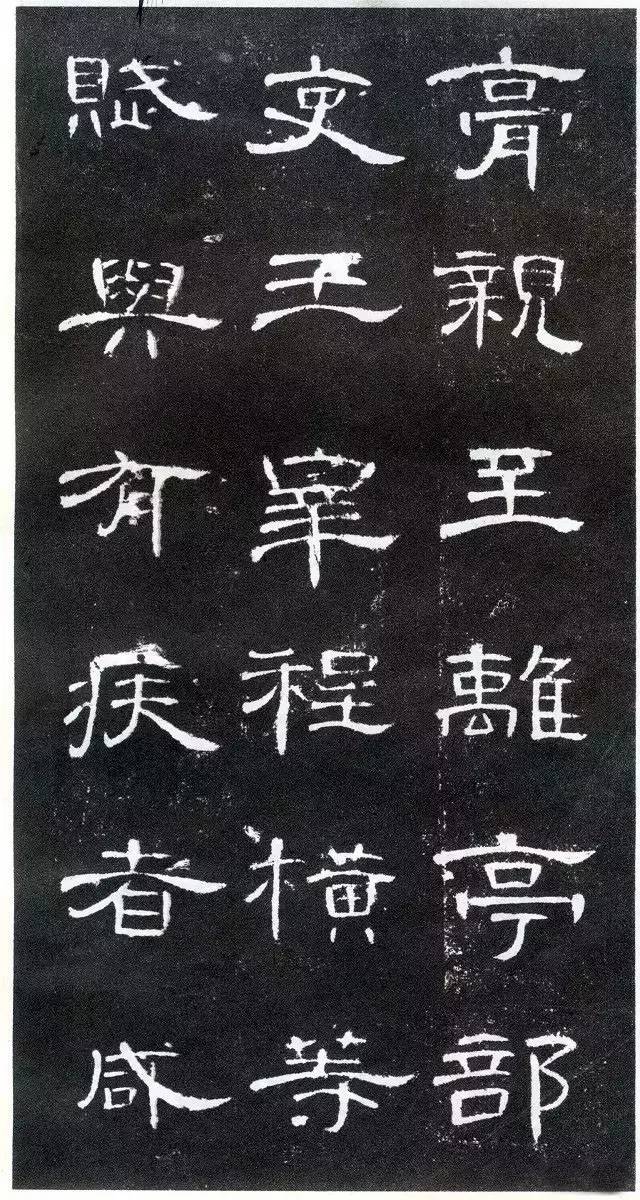 膏親至離亭部
吏王宰程橫等
賦與有疾者咸